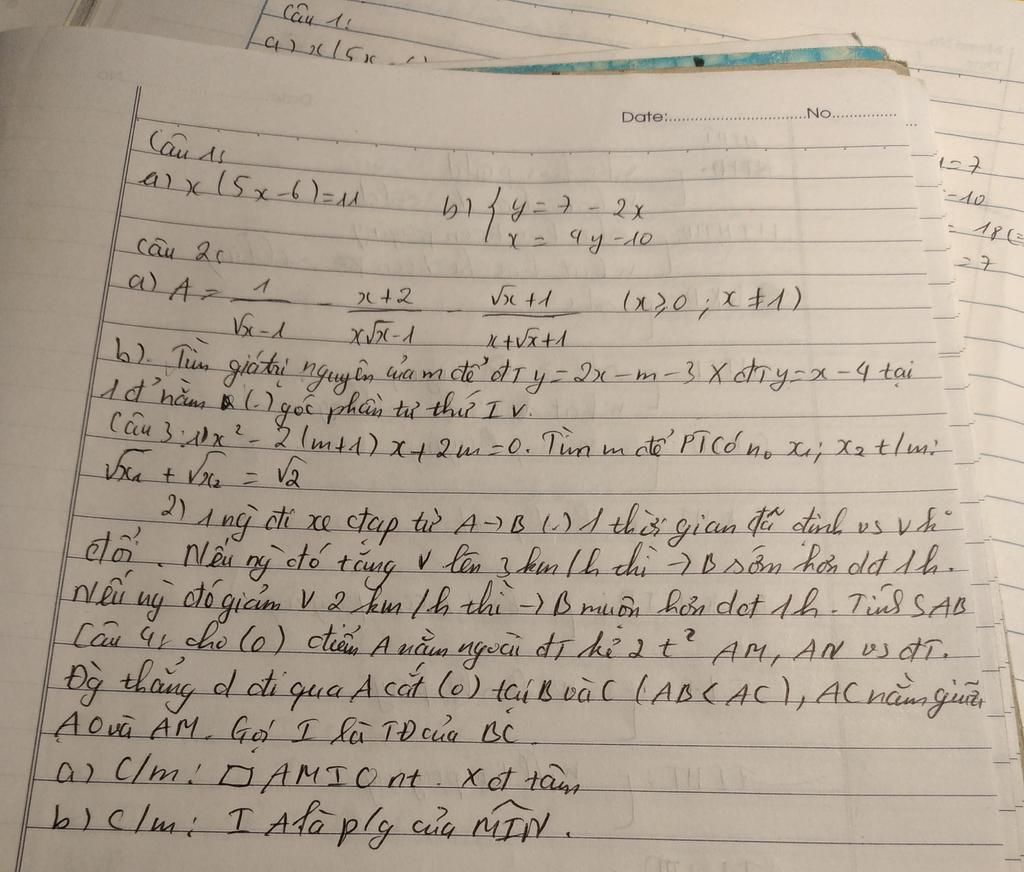 Câu 1:
a) x(5x-6
Date:..............................No..................
Câu 1:
a) x(5x-6)=11
b) { y = 7 - 2x
x = 4y - 10
Câu 2:
a) A = 1/(√x-1) - (x+2)/(x√x-1) - (√x+1)/(x+√x+1) (x≥0; x≠1)
b). Tìm giá trị nguyên của m để đT y=2x-m-3 X đT y=x-4 tại
1đ' nằm (.) góc phần tư thứ IV.
Câu 3: 1) x² - 2(m+1)x + 2m=0. Tìm m để PT có n₀ x₁; x₂ t/m:
√x₁ + √x₂ = √2
2) 1 ng` đi xe đạp từ A→B (.) 1 thời gian đã định vs v k°
đổi. Nếu ng` đó tăng v lên 3 km/h thì →B sớm hơn dđ 1h.
Nếu ng` đó giảm v 2 km/h thì →B muộn hơn dđ 1h. Tính SAB
Câu 4: cho (O) điểm A nằm ngoài đT kẻ 2 t² AM, AN vs đT.
Đg` thẳng d đi qua A cắt (O) tại B và C (AB<AC), AC nằm giữa
AO và AM. Gọi I là TĐ của BC
a) C/m: □ AMIO nt. Xđ tâm
b) C/m: IA là p/g của MIN.
=7
=10
= 18(=
=7